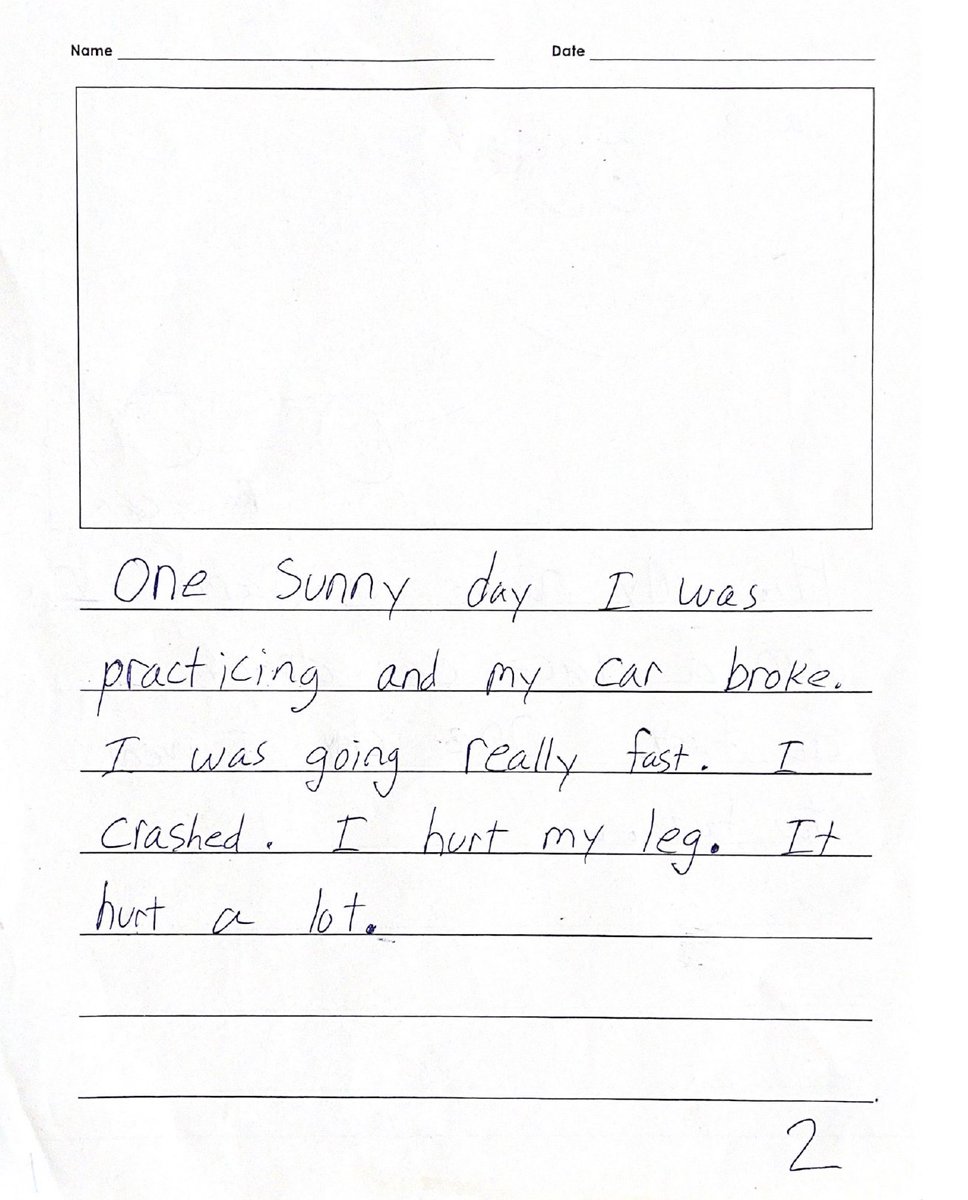 Name Date
One Sunny day I was
practicing and my car broke.
I was going really fast. I
crashed. I hurt my leg. It
hurt a lot.
2